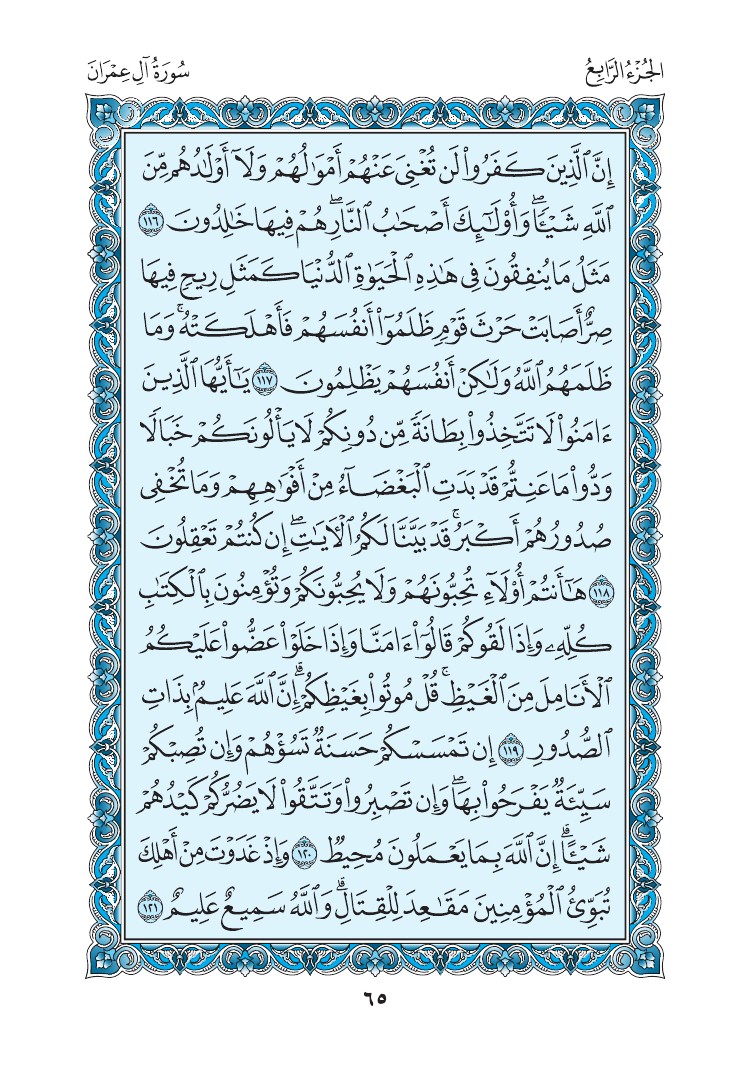 الجُزْءُ الرَّابِعُ
سُورَةُ آلِ عِمْرَانَ
إِنَّ ٱلَّذِينَ كَفَرُوا۟ لَن تُغْنِىَ عَنْهُمْ أَمْوَٰلُهُمْ وَلَآ أَوْلَٰدُهُم مِّنَ
ٱللَّهِ شَيْـًٔا ۖ وَأُو۟لَٰٓئِكَ أَصْحَٰبُ ٱلنَّارِ ۚ هُمْ فِيهَا خَٰلِدُونَ ١١٦
مَثَلُ مَا يُنفِقُونَ فِى هَٰذِهِ ٱلْحَيَوٰةِ ٱلدُّنْيَا كَمَثَلِ رِيحٍ فِيهَا
صِرٌّ أَصَابَتْ حَرْثَ قَوْمٍ ظَلَمُوٓا۟ أَنفُسَهُمْ فَأَهْلَكَتْهُ ۚ وَمَا
ظَلَمَهُمُ ٱللَّهُ وَلَٰكِنْ أَنفُسَهُمْ يَظْلِمُونَ ١١٧ يَٰٓأَيُّهَا ٱلَّذِينَ
ءَامَنُوا۟ لَا تَتَّخِذُوا۟ بِطَانَةً مِّن دُونِكُمْ لَا يَأْلُونَكُمْ خَبَالًا
وَدُّوا۟ مَا عَنِتُّمْ قَدْ بَدَتِ ٱلْبَغْضَآءُ مِنْ أَفْوَٰهِهِمْ وَمَا تُخْفِى
صُدُورُهُمْ أَكْبَرُ ۚ قَدْ بَيَّنَّا لَكُمُ ٱلْـَٔايَٰتِ ۖ إِن كُنتُمْ تَعْقِلُونَ
١١٨ هَٰٓأَنتُمْ أُو۟لَآءِ تُحِبُّونَهُمْ وَلَا يُحِبُّونَكُمْ وَتُؤْمِنُونَ بِٱلْكِتَٰبِ
كُلِّهِۦ وَإِذَا لَقُوكُمْ قَالُوٓا۟ ءَامَنَّا وَإِذَا خَلَوْا۟ عَضُّوا۟ عَلَيْكُمُ
ٱلْأَنَامِلَ مِنَ ٱلْغَيْظِ ۚ قُلْ مُوتُوا۟ بِغَيْظِكُمْ ۗ إِنَّ ٱللَّهَ عَلِيمٌۢ بِذَاتِ
ٱلصُّدُورِ ١١٩ إِن تَمْسَسْكُمْ حَسَنَةٌ تَسُؤْهُمْ وَإِن تُصِبْكُمْ
سَيِّئَةٌ يَفْرَحُوا۟ بِهَا ۖ وَإِن تَصْبِرُوا۟ وَتَتَّقُوا۟ لَا يَضُرُّكُمْ كَيْدُهُمْ
شَيْـًٔا ۗ إِنَّ ٱللَّهَ بِمَا يَعْمَلُونَ مُحِيطٌ ١٢٠ وَإِذْ غَدَوْتَ مِنْ أَهْلِكَ
تُبَوِّئُ ٱلْمُؤْمِنِينَ مَقَٰعِدَ لِلْقِتَالِ ۗ وَٱللَّهُ سَمِيعٌ عَلِيمٌ ١٢١
٦٥